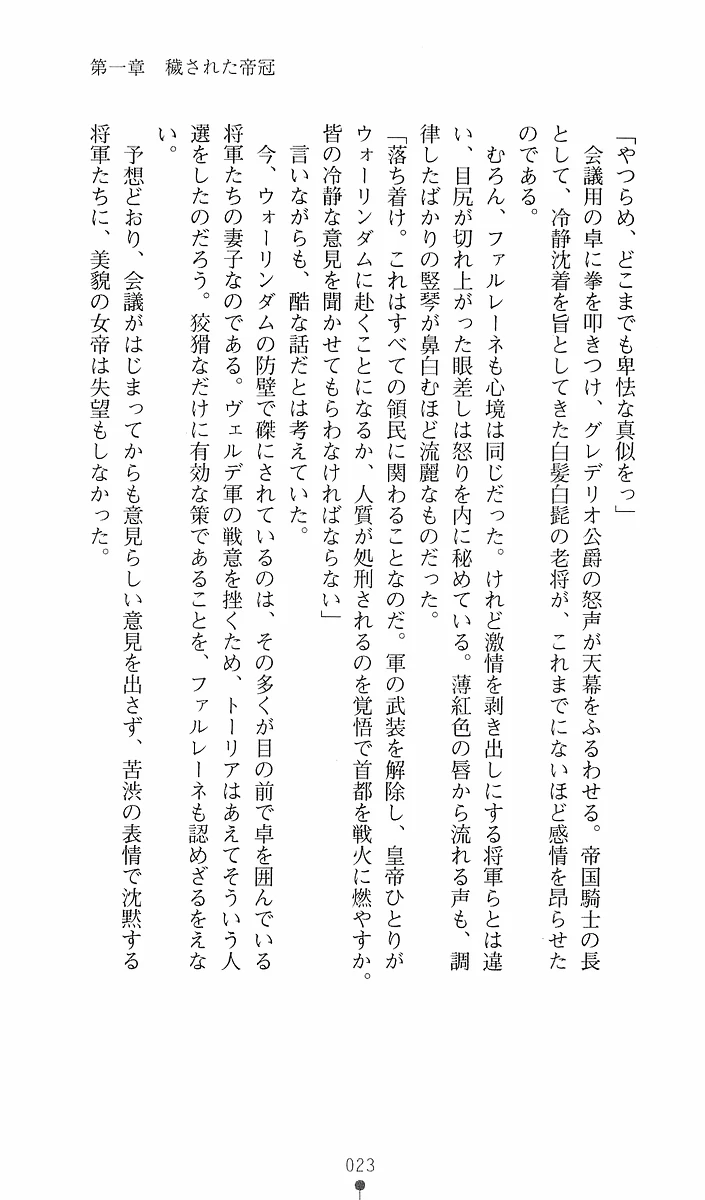 第一章　穢された帝冠
「やつらめ、どこまでも卑怯な真似をっ」
　会議用の卓に拳を叩きつけ、グレデリオ公爵の怒声が天幕をふるわせる。帝国騎士の長
として、冷静沈着を旨としてきた白髪白髭の老将が、これまでにないほど感情を昂らせた
のである。
　むろん、ファルレーネも心境は同じだった。けれど激情を剥き出しにする将軍らとは違
い、目尻が切れ上がった眼差しは怒りを内に秘めている。薄紅色の唇から流れる声も、調
律したばかりの竪琴が鼻白むほど流麗なものだった。
「落ち着け。これはすべての領民に関わることなのだ。軍の武装を解除し、皇帝ひとりが
ウォーリンダムに赴くことになるか、人質が処刑されるのを覚悟で首都を戦火に燃やすか。
皆の冷静な意見を聞かせてもらわなければならない」
　言いながらも、酷な話だとは考えていた。
　今、ウォーリンダムの防壁で磔にされているのは、その多くが目の前で卓を囲んでいる
将軍たちの妻子なのである。ヴェルデ軍の戦意を挫くため、トーリアはあえてそういう人
選をしたのだろう。狡猾なだけに有効な策であることを、ファルレーネも認めざるをえな
い。
　予想どおり、会議がはじまってからも意見らしい意見を出さず、苦渋の表情で沈黙する
将軍たちに、美貌の女帝は失望もしなかった。
023